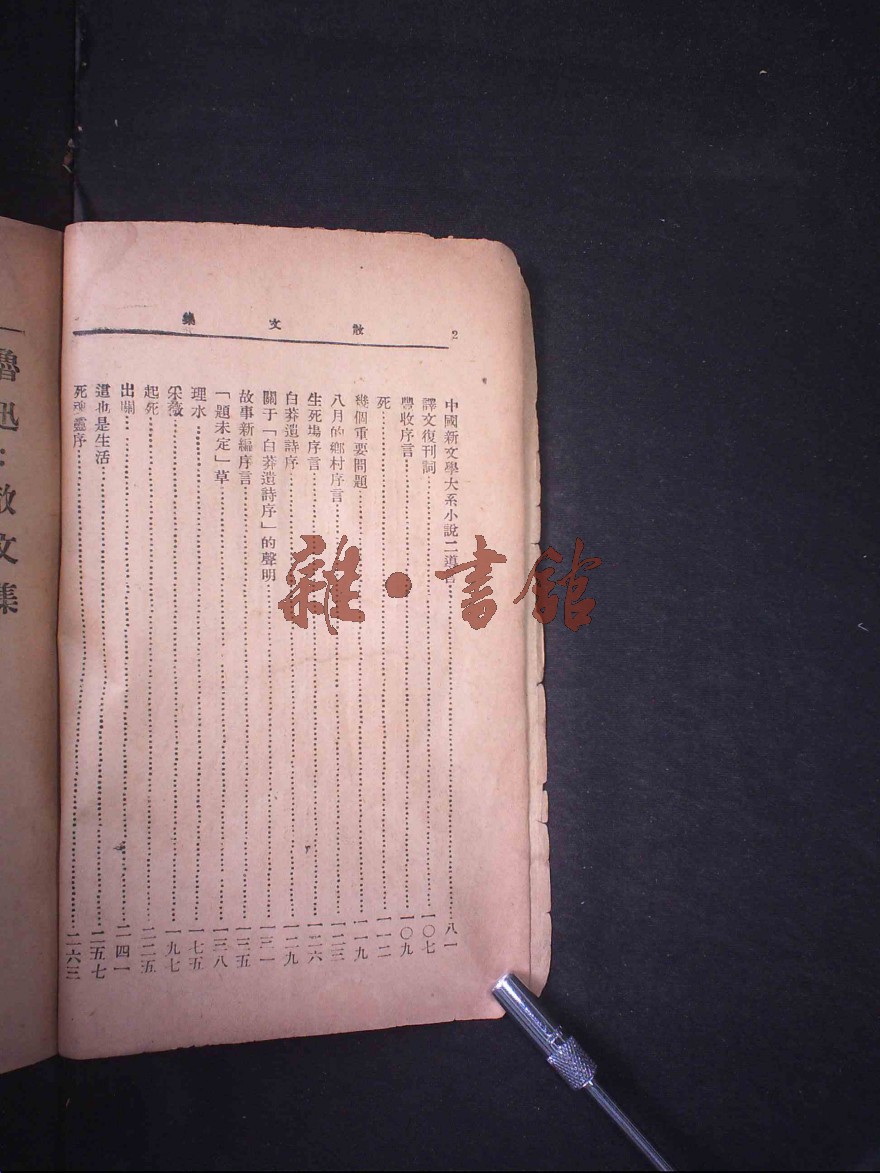 散文集
2
中國新文學大系小說二導言……八一
譯文復刊詞……一〇七
豐收序言……一〇九
死……一一二
幾個重要問題……一一九
八月的鄉村序言……一二三
生死場序言……一二六
白莽遺詩序……一二九
關于「白莽遺詩序」的聲明……一三一
故事新編序言……一三五
「題未定」草……一三八
理水……一七五
采薇……一九七
起死……二二五
出關……二四一
這也是生活……二五七
死魂靈序……二六三
魯迅：散文集
雜·書館